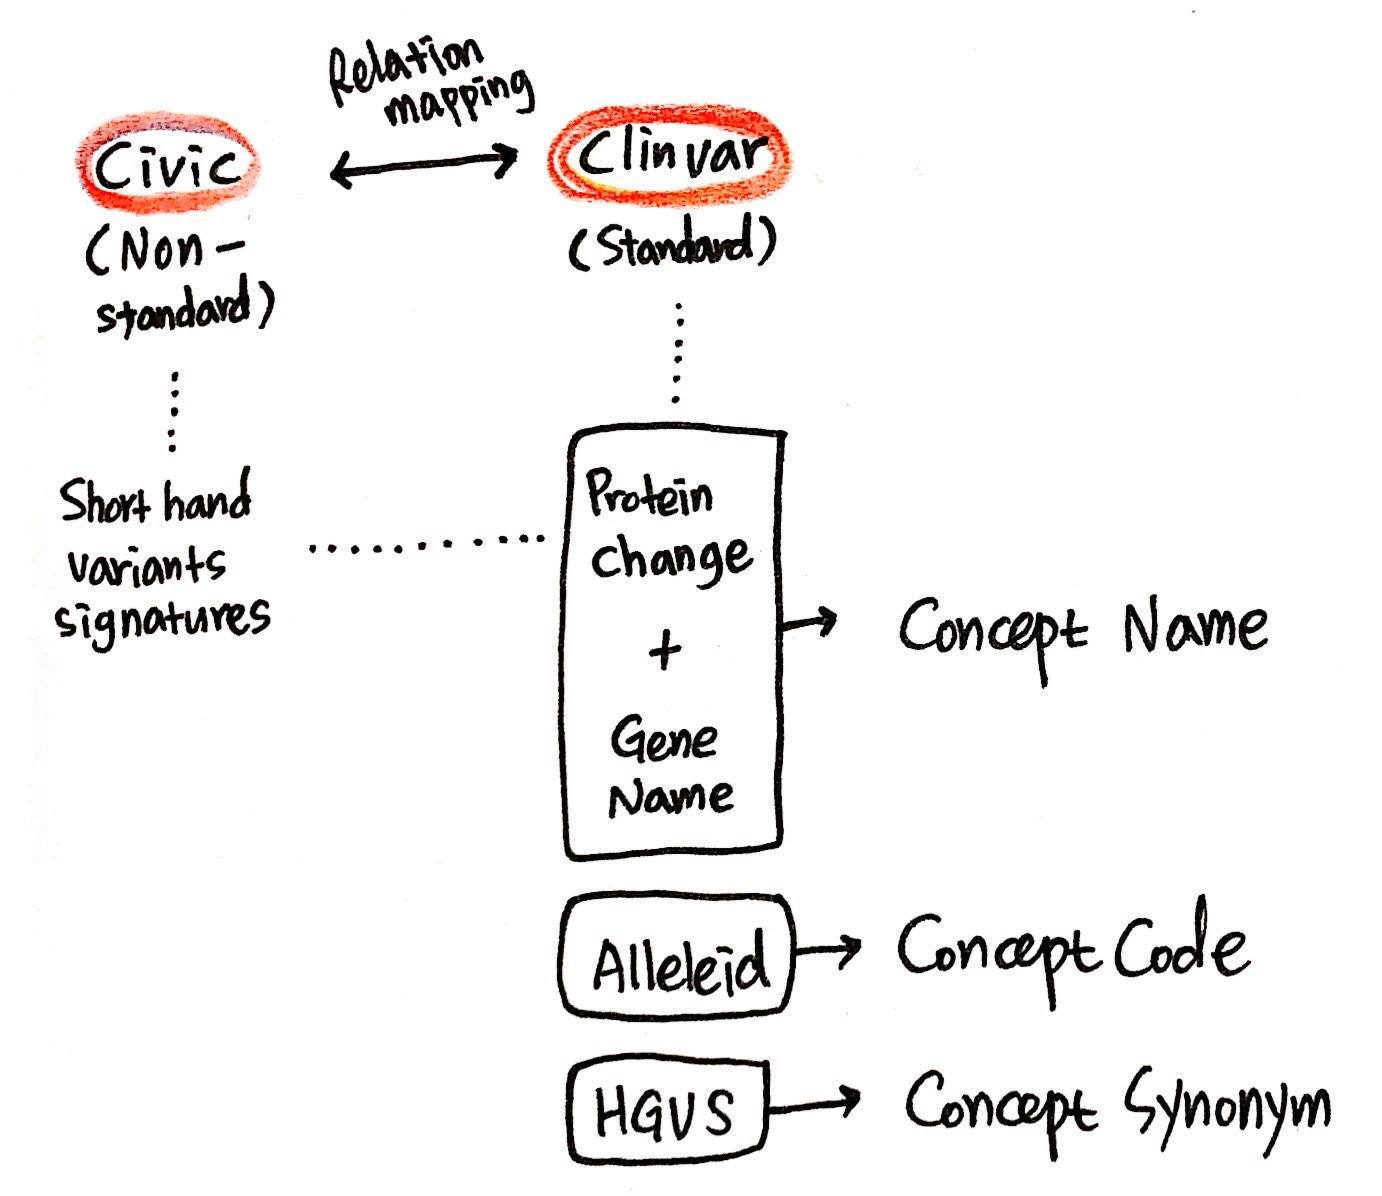 Relation
mapping
Civic
Clinvar
(Non-
standard)
(Standard)
Short hand
variants
signatures
Protein
change
+
Gene
Name
Concept Name
Alleleid
Concept Code
HGVS
Concept Synonym